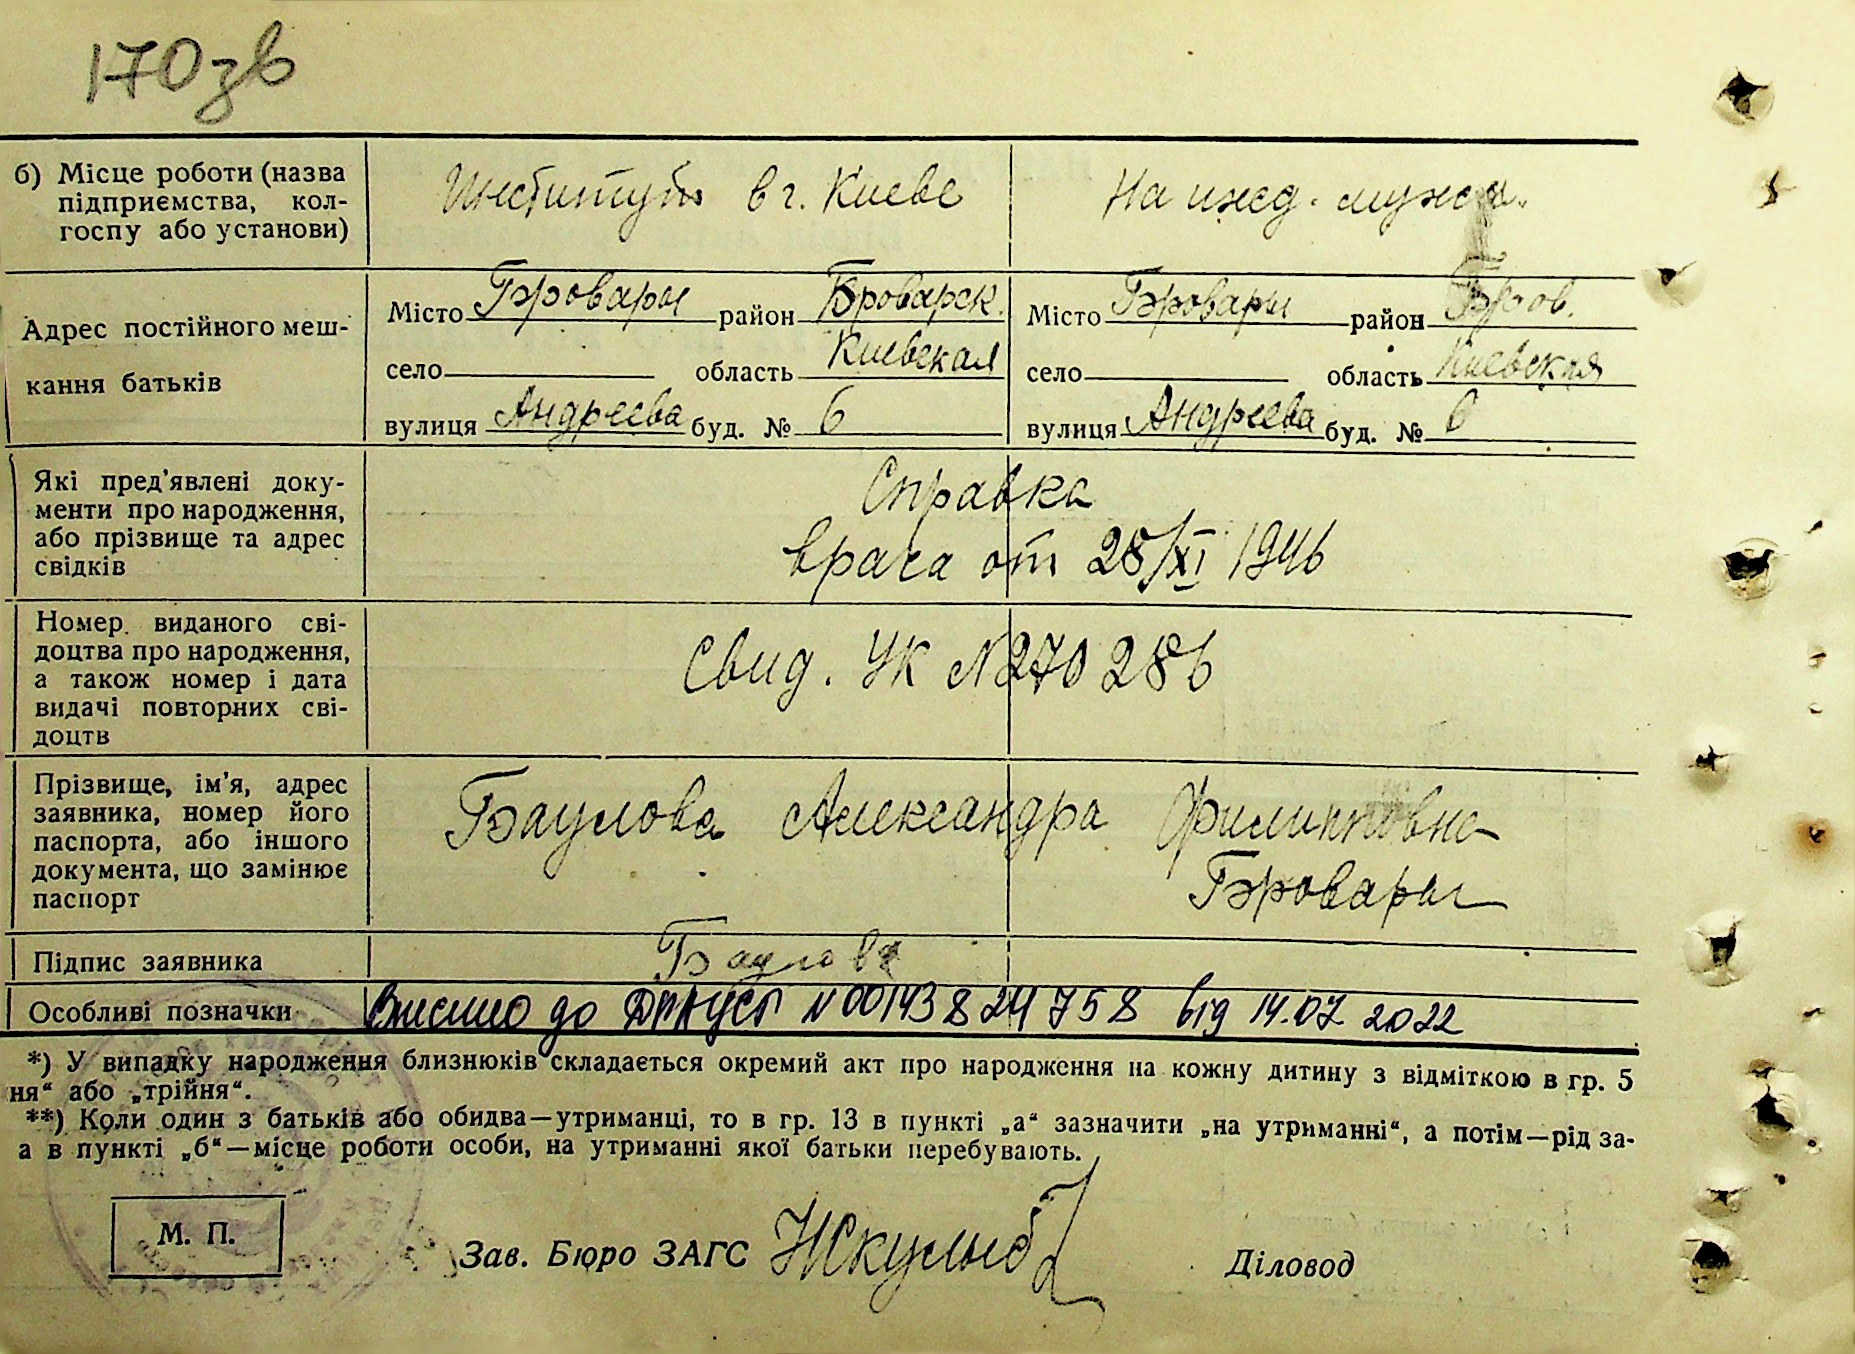 170зв
б) Місце роботи (назва
підприємства, кол-
госпу або установи)
Институт в г. Киеве
На ижд. мужа.
Адрес постійного меш-
кання батьків
Місто Бровары район Броварск.
село область Киевская
вулиця Андреева буд. № 6
Місто Бровары район Бров.
село область Киевская
вулиця Андреева буд. № 6
Які пред'явлені доку-
менти про народження,
або прізвище та адрес
свідків
Справка
врача от 28/XI 1946
Номер виданого сві-
доцтва про народження,
а також номер і дата
видачі повторних сві-
доцтв
Свид. УК N270286
Прізвище, ім'я, адрес
заявника, номер його
паспорта, або іншого
документа, що замінює
паспорт
Баулова Александра Филипповна
Бровары
Підпис заявника
Баулова
Особливі позначки
Внесено до ДРАЦСГ N00143824758 від 14.07 2022
*) У випадку народження близнюків складається окремий акт про народження на кожну дитину з відміткою в гр. 5
ня“ або „трійня“.
**) Коли один з батьків або обидва—утриманці, то в гр. 13 в пункті „а“ зазначити „на утриманні“, а потім—рід за-
а в пункті „б“—місце роботи особи, на утриманні якої батьки перебувають.
М. П.
Зав. Бюро ЗАГС
Діловод